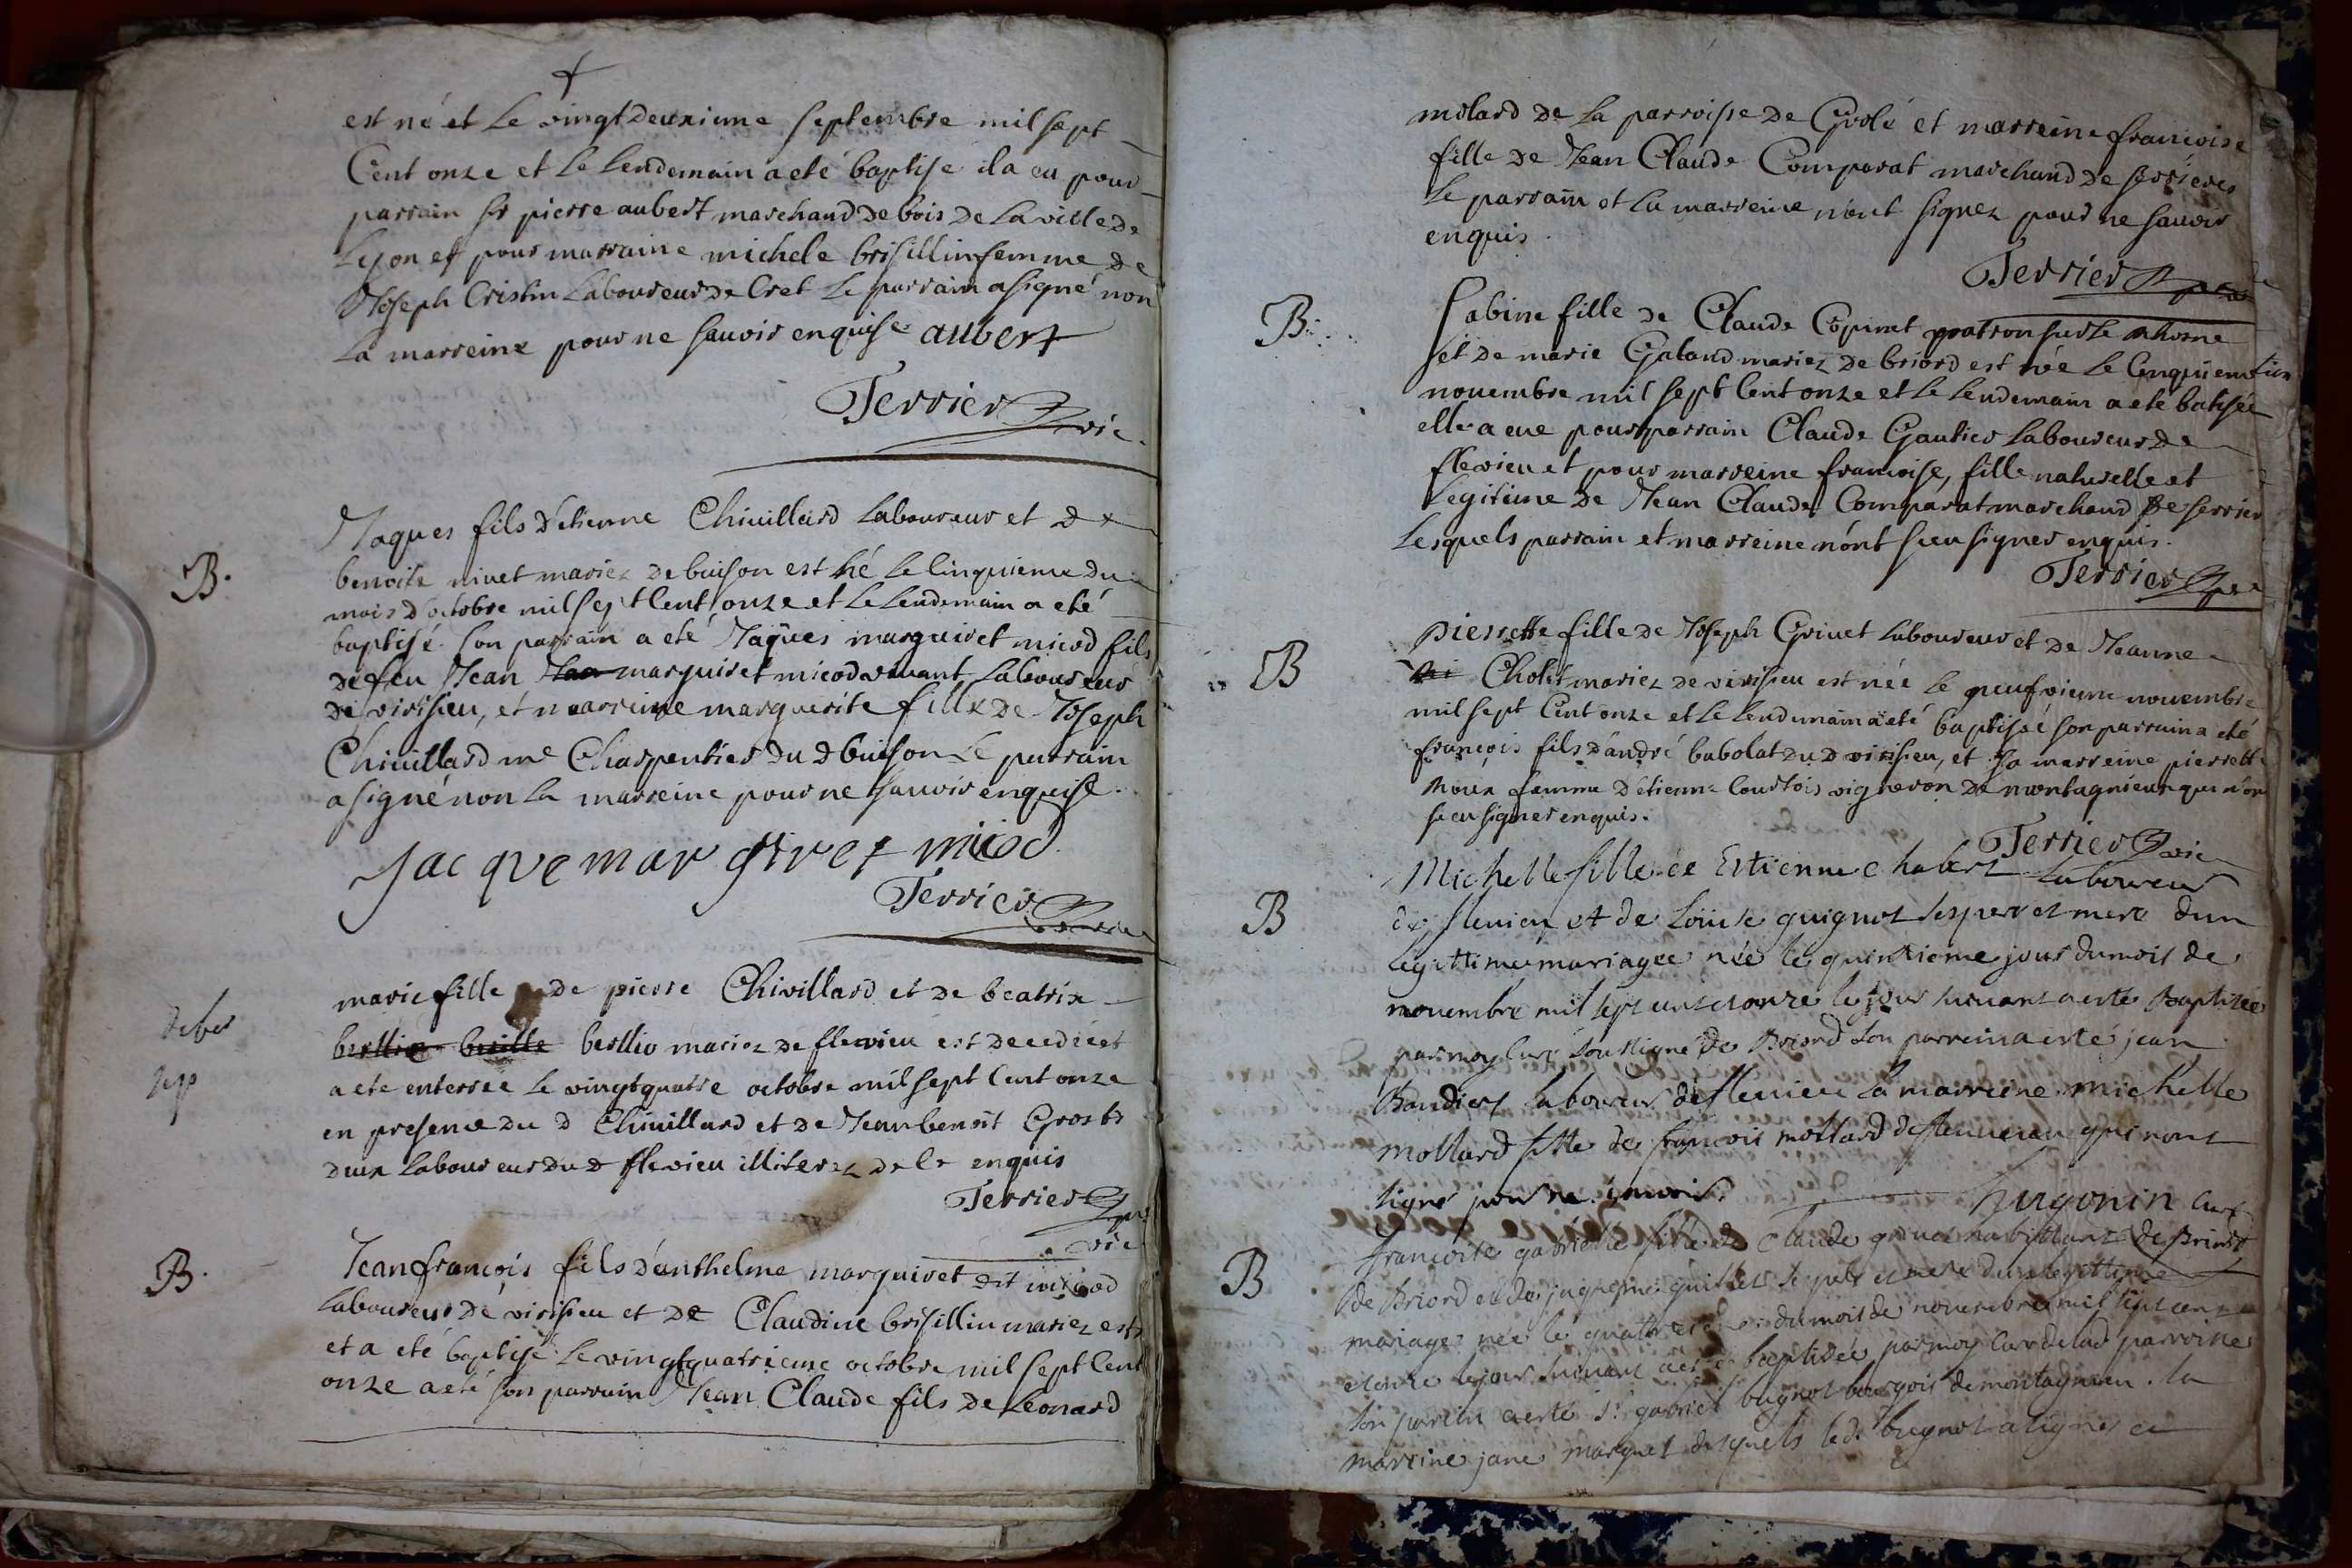 est né et le vingtdeuxieme septembre mil sept
Cent onze et le lendemain a eté baptisé il a eu pour
parrain sr pierre aubert marchand de bois de la ville de
Lyon et pour marraine michele brisillin femme de
Joseph Cristin Laboureur de Cret le parrain a signé non
la marreine pour ne sauoir enquise aubert
Terrier vic
B.
Jaques fils d'etienne Chiuillard laboureur et de
benoite niuet mariez de buison est né le cinquieme du
mois d'octobre mil sept Cent onze et le lendemain a eté
baptisé son parrain a eté Jaques marguiret micod fils
de feu Jean marguiret micod viuant laboureur
de virisieu, et marreine marguerite fille de Joseph
Chiuillard me Charpentier du d buison le parrain
a signé non la marreine pour ne sauoir enquise.
Jacque mar giret micod
Terrier
marie fille de pierre Chivillard et de beatrix
berllio mariez de flevieu est decedée et
a eté enterrée le vingtquatre octobre mil sept Cent onze
en presence du d Chiuillard et de Jean benoit Gros ts
deux laboureur du d flevieu illiterez de ce enquis
Terrier
vic
B.
Jean françois fils d'anthelme marguiret dit micod
laboureur de virisieu et de Claudine brisillin mariez est
et a eté baptisé le vingtquatrieme octobre mil sept Cent
onze a eté son parrain Jean Claude fils de Leonard
molard de la parroisse de Grolé et marreine francoise
fille de Jean Claude Comparat marchand de serrieres
le parrain et la marreine n'ont signez pour ne sauoir
enquis.
Terrier
B
Sabine fille de Claude Copinet patron sur le rhone
et de marie Galand mariez de briord est née le
novembre mil sept Cent onze et le lendemain a eté batisée
elle a eue pour parrain Claude Gautier laboureur de
flevieu et pour marreine francoise, fille naturelle et
legitime de Jean Claude Comparat marchand de
Lesquels parrain et marreine n'ont sceu signer enquis.
Terrier
B
pierrette fille de Joseph Griuet laboureur et de Jeanne
Cholit mariez de virisieu est née le neufvieme nouembre
mil sept Cent onze et le lendemain a eté baptisé son parrain a eté
françois fils d'andré babolat du d virisieu, et sa marreine pierrette
noux femme d'etienne Courtois vigneron de montagnieu qui n'on
sceu signer enquis.
Terrier vic
B
Michelle fille de Estienne chabert laboureur
de fleuieu et de Louise guignot ses pere et mere dun
legittime mariage née le quinzieme jour du mois de
nouembre mil sept cent et onze le jour suiuant a esté Baptisée
par moy Curé soussigné de Briord son parrein a esté jean
Baudier laboureur de fleuieu la marreine michelle
mollard fille de françois mollard de qui nont
signé pour ne scauoir.
hugonin Curé
B
francoise gabrielle fille de Claude habittant de Briord
de Briord et de
mariage née le du mois de nouembre mil sept cent
et onze le jour suiuant a esté baptisée par moy Curé de lad parroisse
son parrein a esté Sr gabriel bugnot bourgois de montagnieu. la
marrine jane marquet desquels led bugnot a signé et